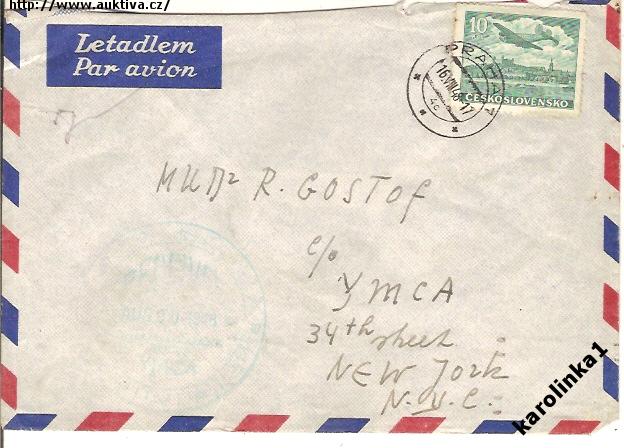 http://www.auktiva.cz/
Letadlem
Par avion
10
PRAHA 7
16.VIII.48-17
4c
ČESKOSLOVENSKO
MUDr R. GOSTOF
c/o
YMCA
34th street
NEW York
N.Y.C.
karolinka1